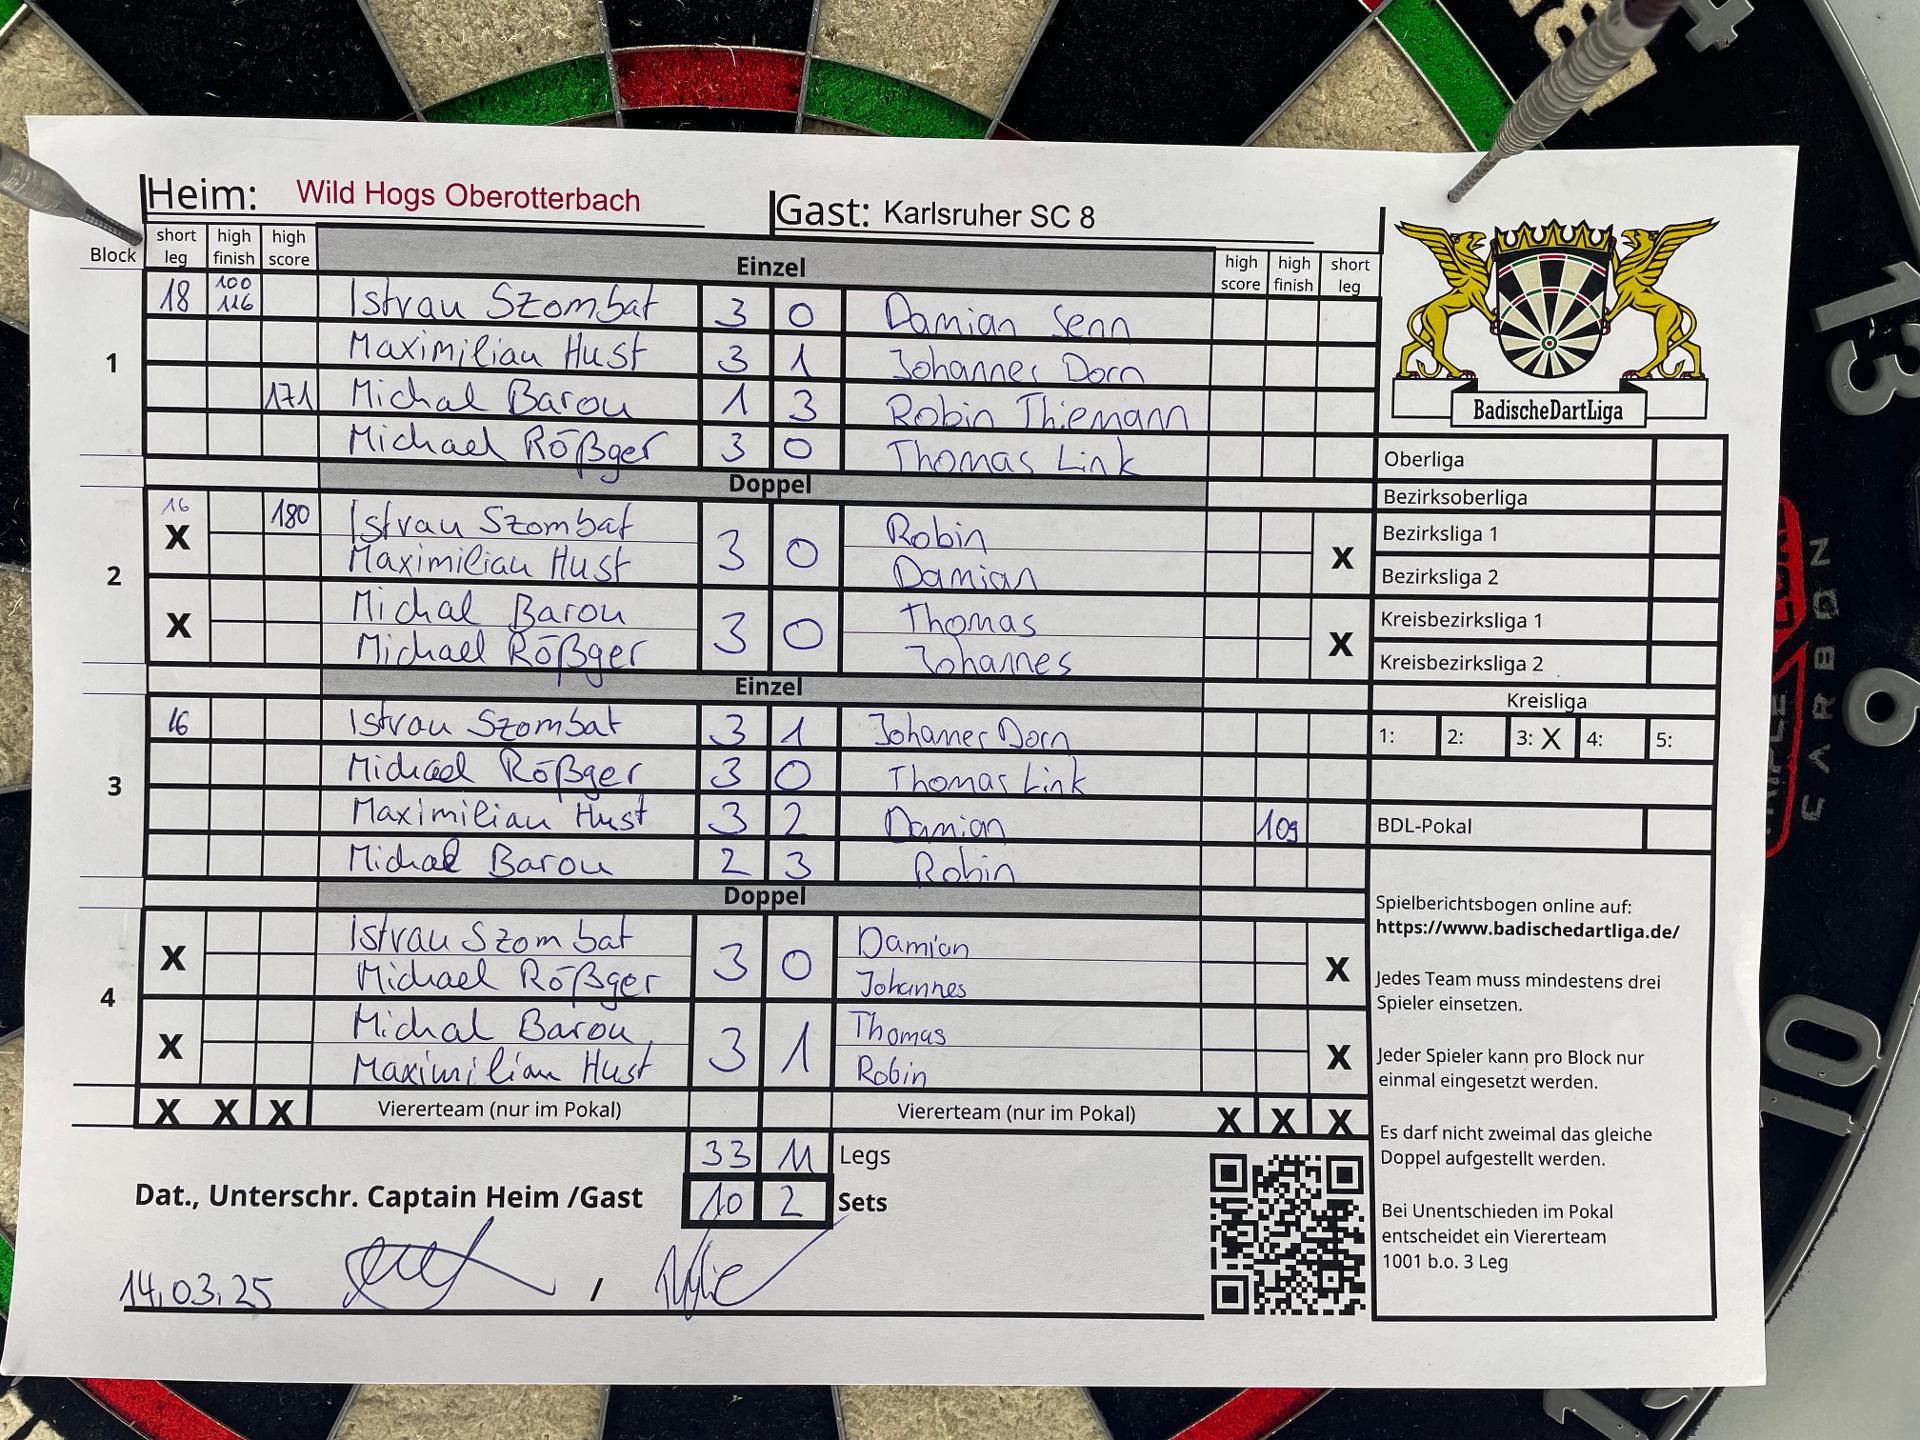 Heim: Wild Hogs Oberotterbach Gast: Karlsruher SC 8
Block short leg high finish high score Einzel high score high finish short leg
1
18 100 116 Istvan Szombat 3 0 Damian Senn
Maximilian Hust 3 1 Johannes Dorn
171 Michal Barou 1 3 Robin Thiemann
Michael Rößger 3 0 Thomas Link
Doppel
2
16 X 180 Istvan Szombat 3 0 Robin X
Maximilian Hust Damian
X Michal Barou 3 0 Thomas X
Michael Rößger Johannes
Einzel
3
16 Istvan Szombat 3 1 Johannes Dorn
Michael Rößger 3 0 Thomas Link
Maximilian Hust 3 2 Damian 109
Michal Barou 2 3 Robin
Doppel
4
X Istvan Szombat 3 0 Damian X
Michael Rößger Johannes
X Michal Barou 3 1 Thomas X
Maximilian Hust Robin
X X X Viererteam (nur im Pokal) Viererteam (nur im Pokal) X X X
33 11 Legs
Dat., Unterschr. Captain Heim /Gast 10 2 Sets
14.03.25 /
BadischeDartLiga
Oberliga
Bezirksoberliga
Bezirksliga 1
Bezirksliga 2
Kreisbezirksliga 1
Kreisbezirksliga 2
Kreisliga
1: 2: 3: X 4: 5:
BDL-Pokal
Spielberichtsbogen online auf:
https://www.badischedartliga.de/
Jedes Team muss mindestens drei
Spieler einsetzen.
Jeder Spieler kann pro Block nur
einmal eingesetzt werden.
Es darf nicht zweimal das gleiche
Doppel aufgestellt werden.
Bei Unentschieden im Pokal
entscheidet ein Viererteam
1001 b.o. 3 Leg
18
4
13
6
10
CARBON